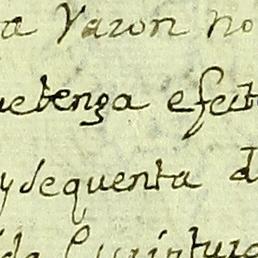 a razon no
uetenga efect
y de quenta d